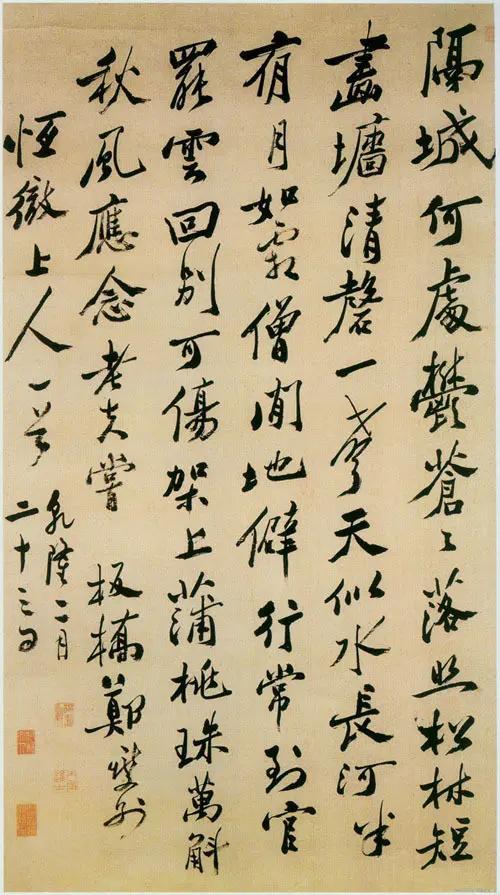 隔城何處鬱蒼〻落照松林短
畵墻清磬一聲天似水長河半
有月如霜僧閒地僻行常到官
罷雲回別可傷架上蒲桃珠萬斛
秋風應念老夫嘗 板橋鄭燮別
恆徹上人一首
乾隆二月
二十三日